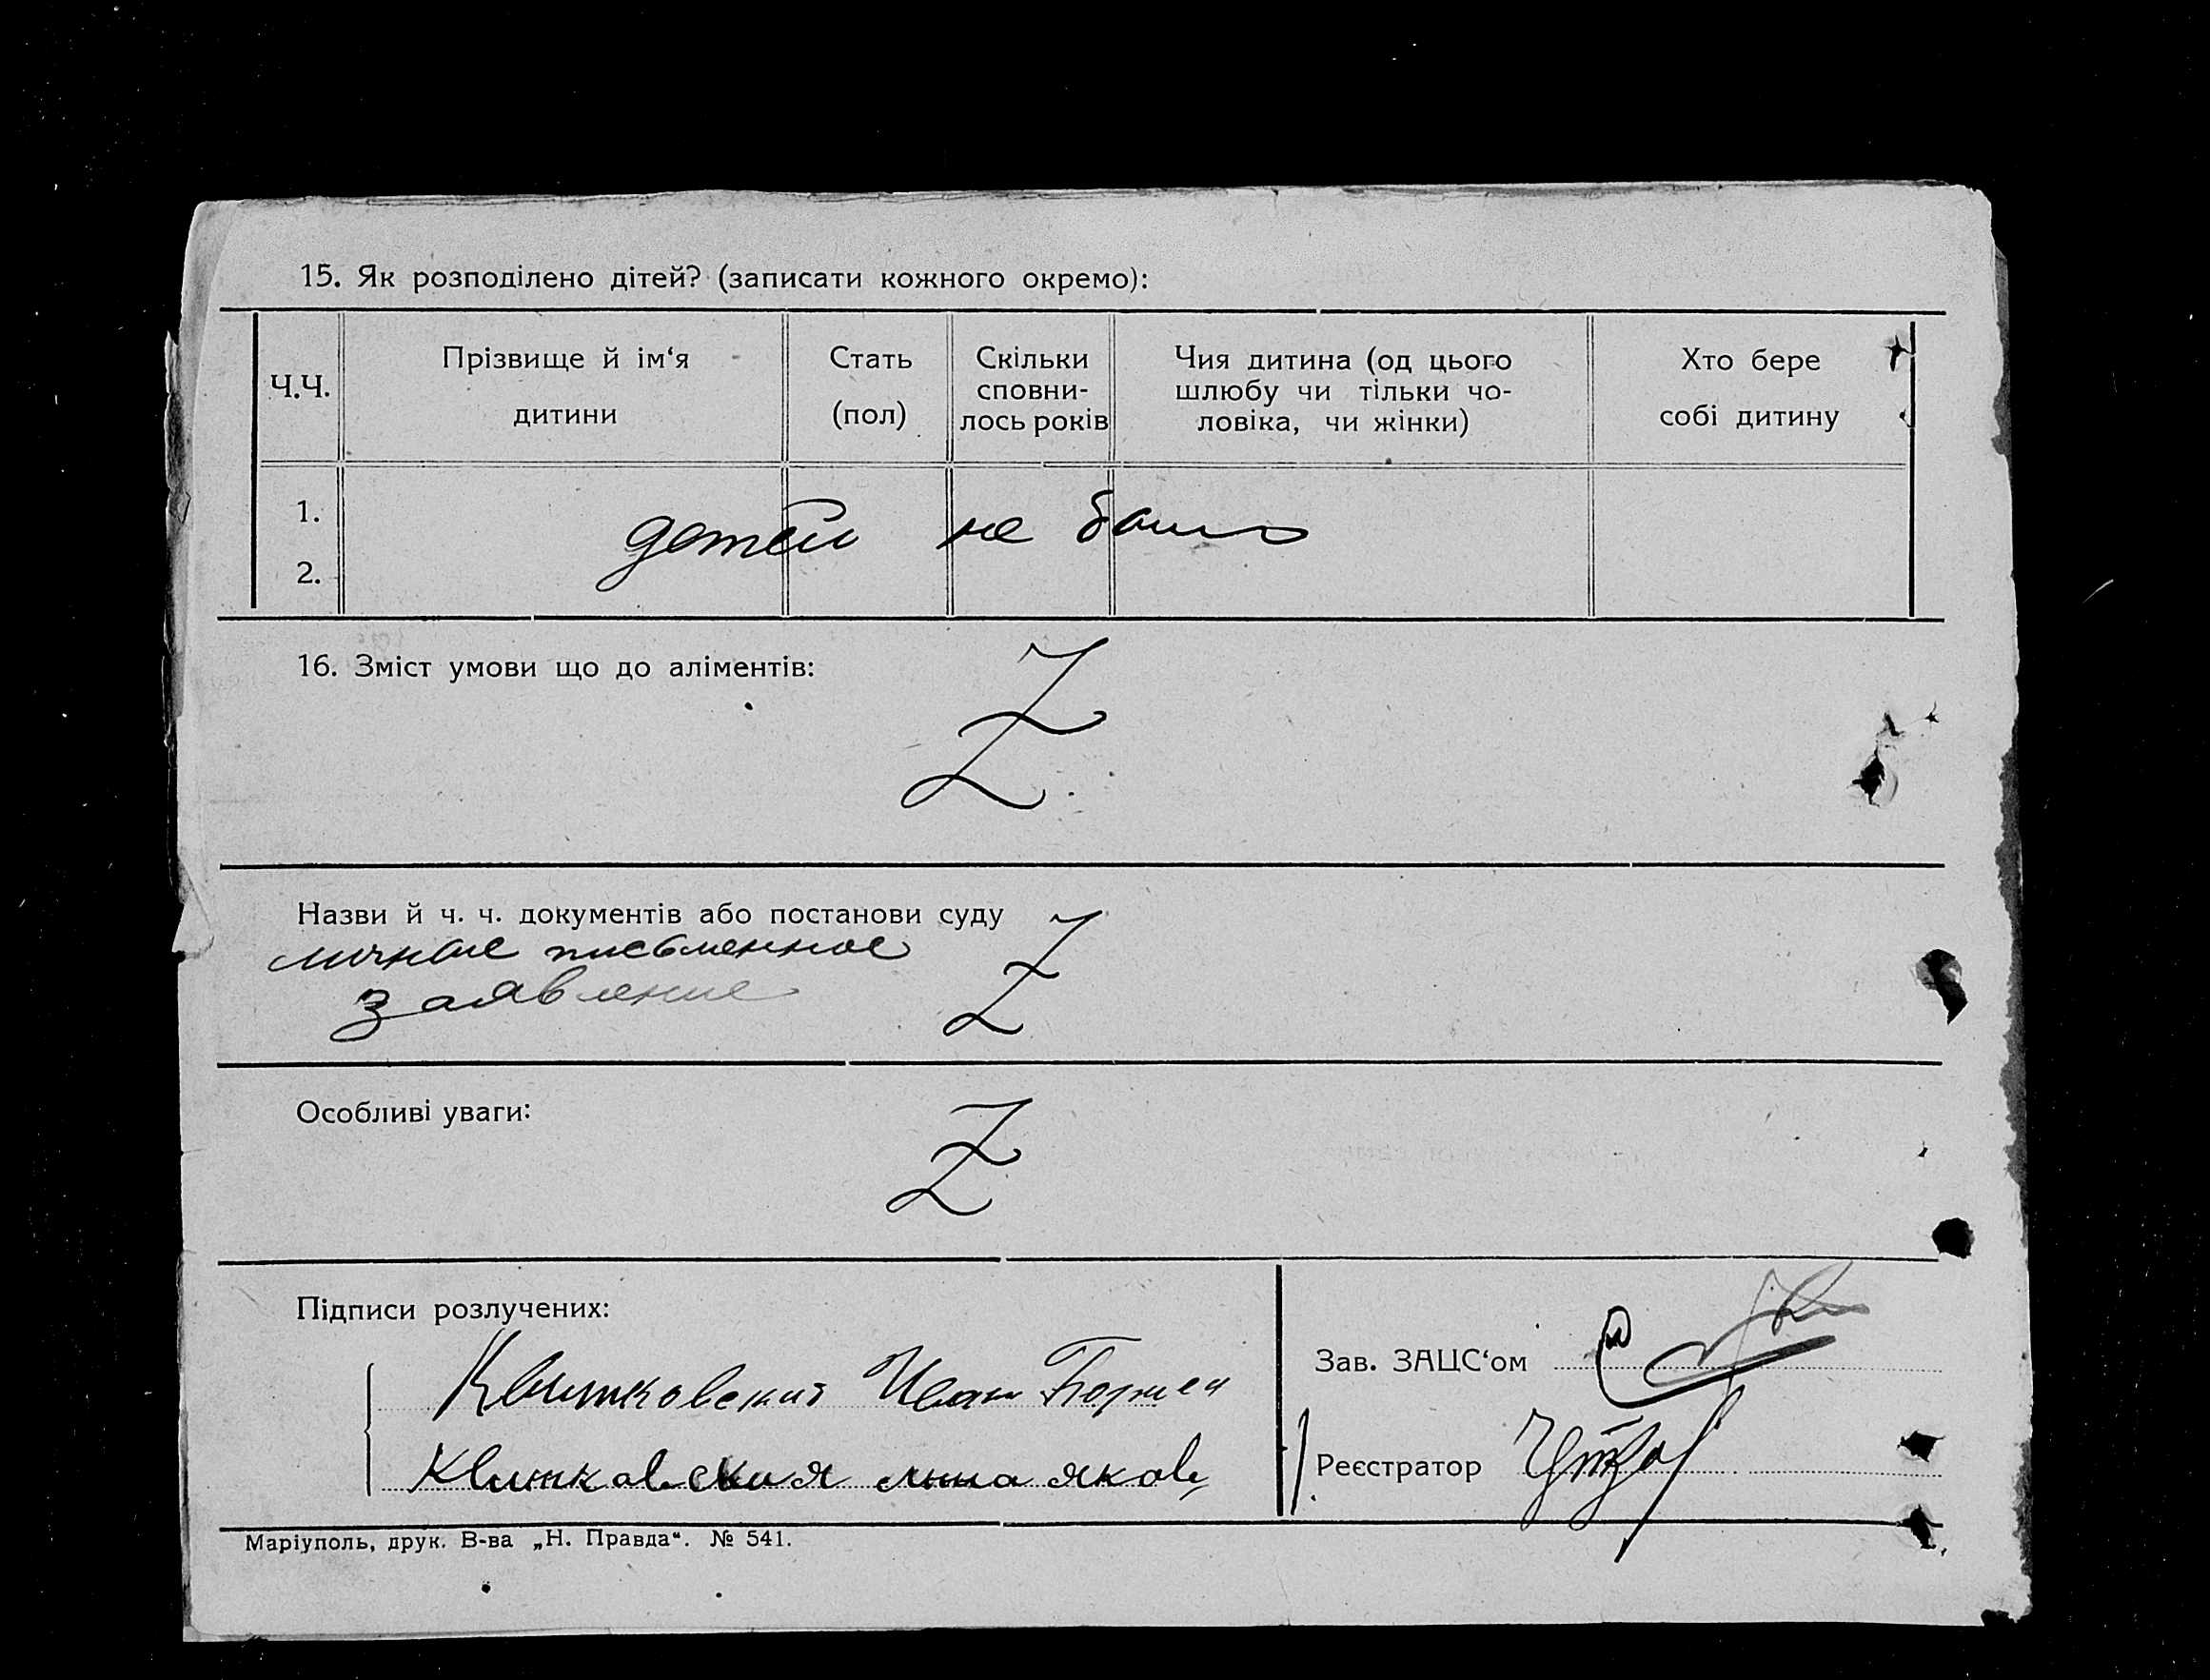 15. Як розподілено дітей? (записати кожного окремо):
Ч.Ч.
Прізвище й ім‘я
дитини
Стать
(пол)
Скільки
сповни-
лось років
Чия дитина (од цього
шлюбу чи тільки чо-
ловіка, чи жінки)
Хто бере
собі дитину
1.
2.
детей не было
16. Зміст умови що до аліментів:
Z
Назви й ч. ч. документів або постанови суду
личное письменное
заявление
Z
Особливі уваги:
Z
Підписи розлучених:
Квитковский Иван
Квитковская яков
Зав. ЗАЦС‘ом
Реєстратор
Маріуполь, друк. В-ва „Н. Правда“. № 541.